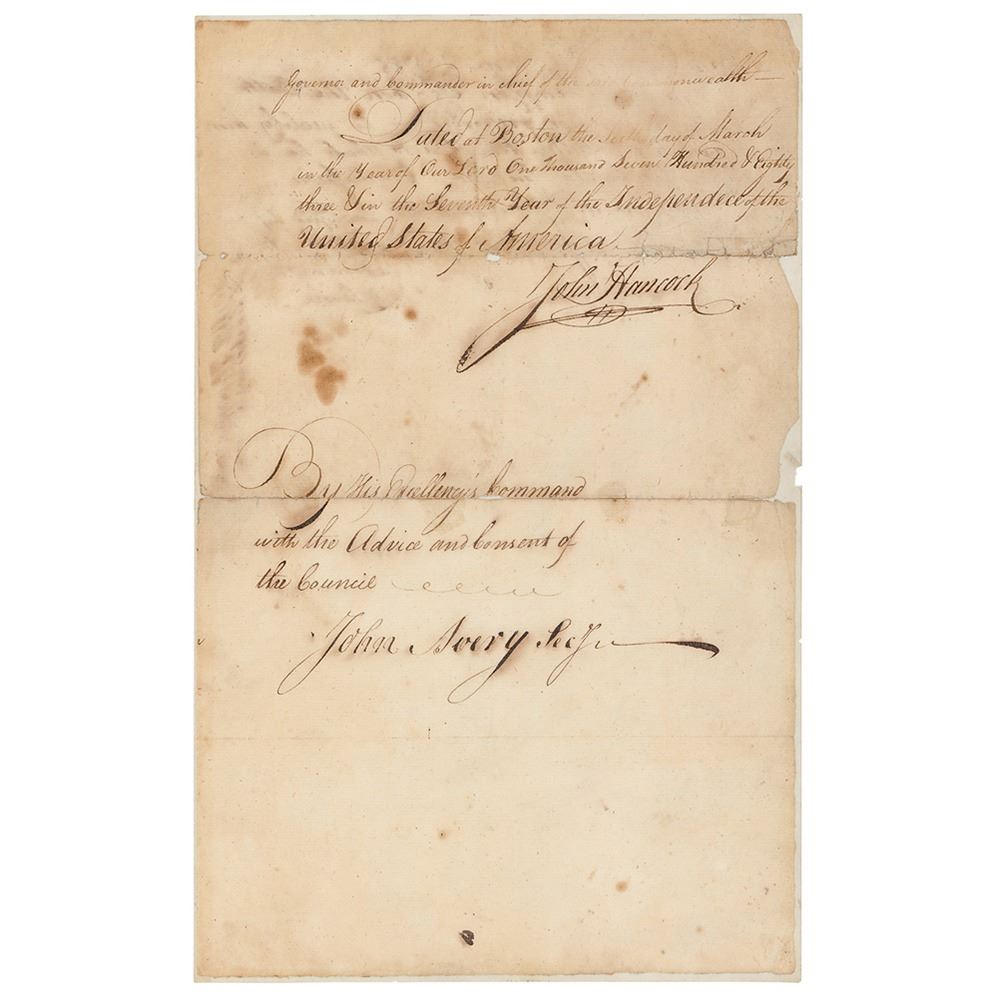 Governor and Commander in chief of the said Commonwealth
Dated at Boston the day of March
in the Year of Our Lord One Thousand Seven Hundred & Eighty
three & in the Seventh Year of the Independece of the
United States of America
John Hancock
By His Excellency's Command
with the Advice and Consent of
the Council
John Avery Secy